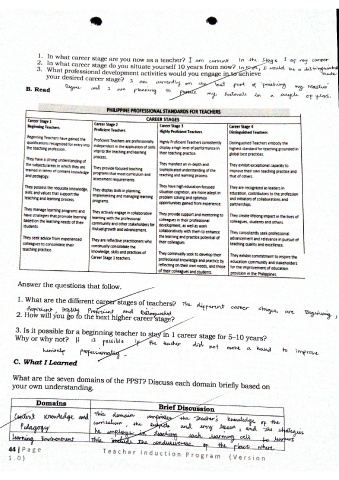 1. In what career stage are you now as a teacher? I am current in the stage 1 of my career
2. In what career stage do you situate yourself 10 years from now? In 10 yrs, I would be a distinguished teacher
3. What professional development activities would you engage in to achieve
your desired career stage? I am currently on the last part of finishing my master
B. Read
degree and I am planning to pursue my doctorate in a couple of years.
PHILIPPINE PROFESSIONAL STANDARDS FOR TEACHERS
CAREER STAGES
Career Stage 1
Beginning Teachers
Career Stage 2
Proficient Teachers
Career Stage 3
Highly Proficient Teachers
Career Stage 4
Distinguished Teachers
Beginning Teachers have gained the
qualifications recognized for entry into
the teaching profession.
Proficient Teachers are professionally
independent in the application of skills
vital to the teaching and learning
process.
Highly Proficient Teachers consistently
display a high level of performance in
their teaching practice.
Distinguished Teachers embody the
highest standard for teaching grounded in
global best practices.
They have a strong understanding of
the subjects/areas in which they are
trained in terms of content knowledge
and pedagogy.
They provide focused teaching
programs that meet curriculum and
assessment requirements.
They manifest an in-depth and
sophisticated understanding of the
teaching and learning process.
They exhibit exceptional capacity to
improve their own teaching practice and
that of others.
They possess the requisite knowledge,
skills and values that support the
teaching and learning process.
They display skills in planning,
implementing and managing learning
programs.
They have high education-focused
situation cognition, are more adept in
problem solving and optimize
opportunities gained from experience.
They are recognized as leaders in
education, contributors to the profession
and initiators of collaborations and
partnerships.
They manage learning programs and
have strategies that promote learning
based on the learning needs of their
students.
They actively engage in collaborative
learning with the professional
community and other stakeholders for
mutual growth and advancement.
They provide support and mentoring to
colleagues in their professional
development, as well as work
collaboratively with them to enhance
the learning and practice potential of
their colleagues.
They create lifelong impact in the lives of
colleagues, students and others.
They seek advice from experienced
colleagues to consolidate their
teaching practice.
They are reflective practitioners who
continually consolidate the
knowledge, skills and practices of
Career Stage 1 teachers.
They continually seek to develop their
professional knowledge and practice by
reflecting on their own needs, and those
of their colleagues and students.
They consistently seek professional
advancement and relevance in pursuit of
teaching quality and excellence.
They exhibit commitment to inspire the
education community and stakeholders
for the improvement of education
provision in the Philippines.
Answer the questions that follow.
1. What are the different career stages of teachers? The different career stages are Beginning,
Proficient, Highly Proficient and Distinguished
2. How will you go to the next higher career stage?
3. Is it possible for a beginning teacher to stay in 1 career stage for 5-10 years?
Why or why not? It is possible if the teacher did not make a to improve
professionally.
C. What I Learned
What are the seven domains of the PPST? Discuss each domain briefly based on
your own understanding.
Domains
Brief Discussion
Content Knowledge and
Pedagogy
This domain the teacher's knowledge of the
curriculum, the subjects and every lesson, and the strategies
he employs in teaching each learning to learners
Learning Environment
This the conduciveness of the place where
44 | Page
Teacher Induction Program (Version
1.0)